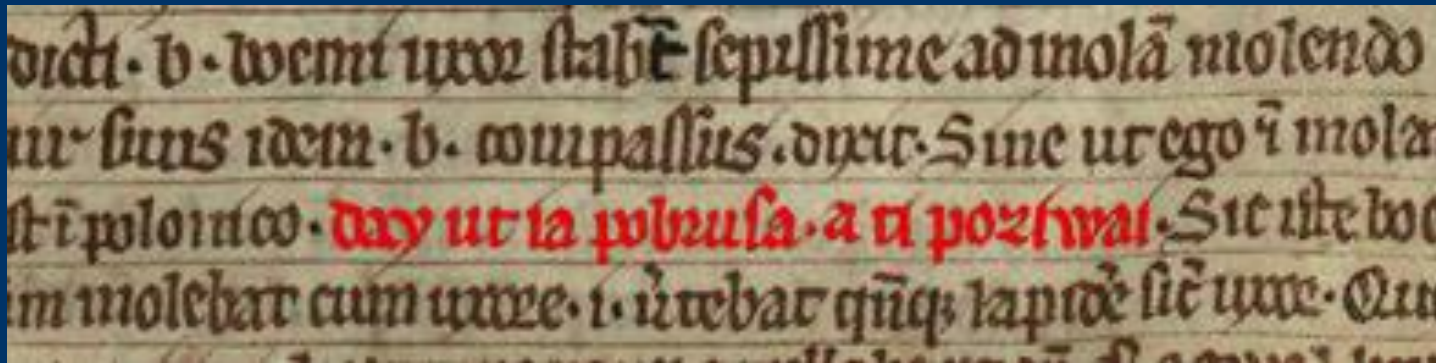 dicti · b · woemi uxor stabat sepissime ad molā molendo
uir suus idem · b · compassus · dixit · Sine ut ego ī mola
st ī polonico · day ut ia pobrusa · a ti poziwai · Sic iste boe
m molebat cum uxore · i · u̓tebat qn̄q; lapidē sic̄ uxor · Qu